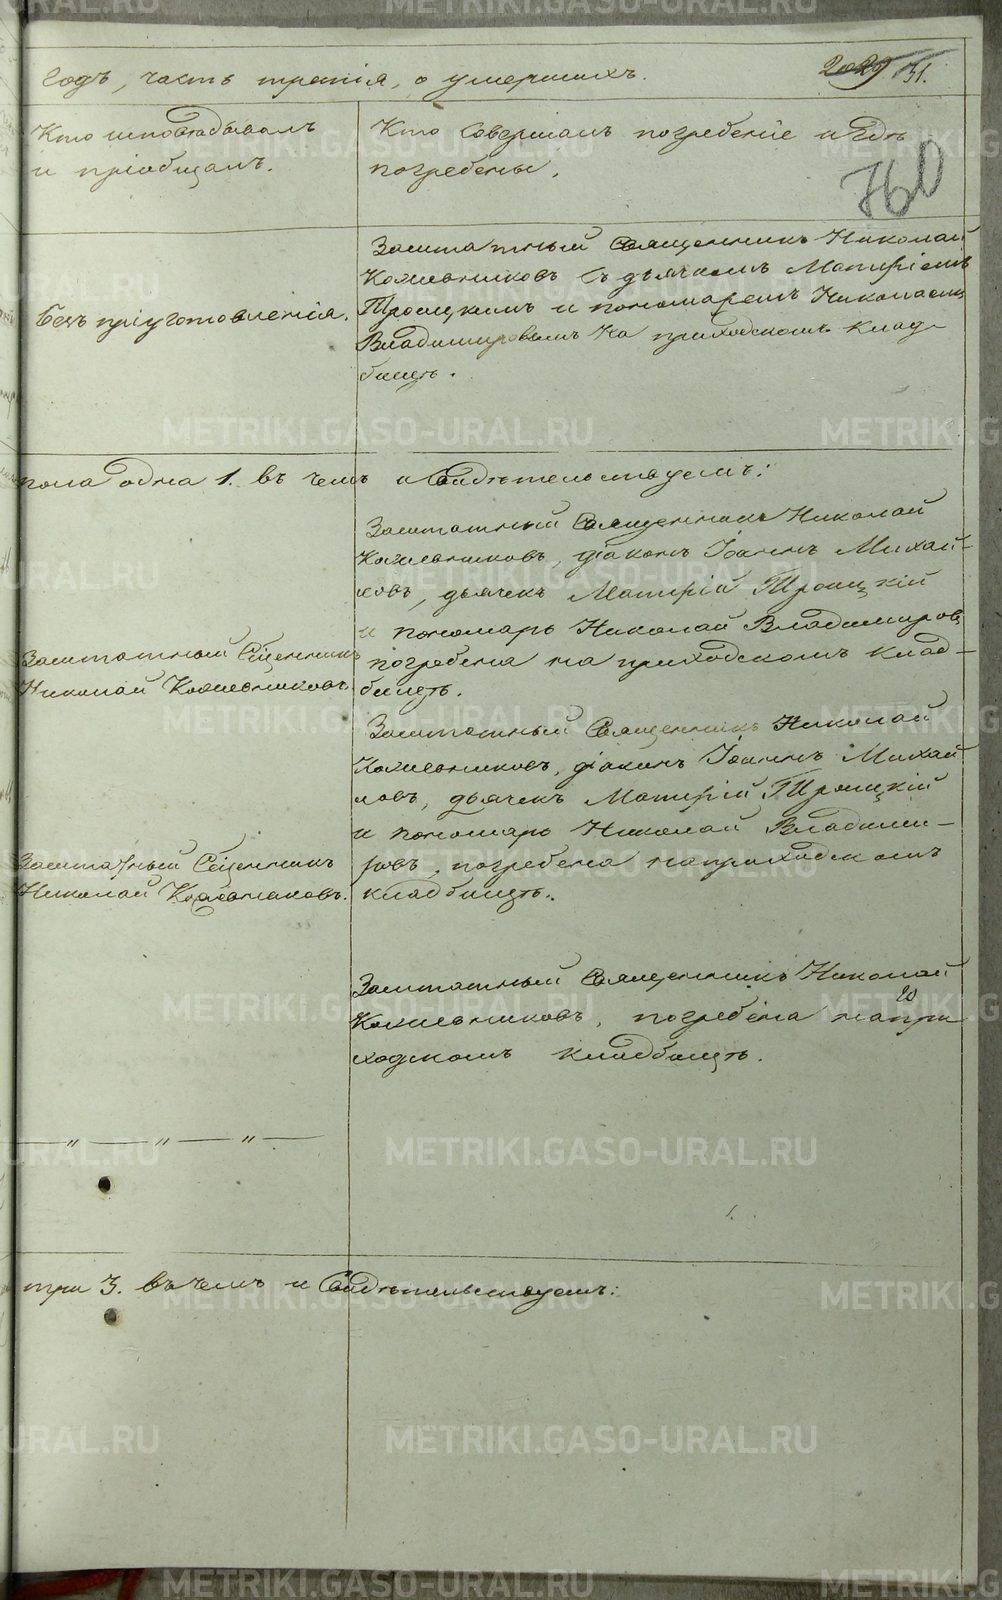 годъ, часть третія, о умершихъ.
31.
Кто исповѣдывалъ
и пріобщалъ.
Кто Совершалъ погребеніе и гдѣ
погребены.
760
Безъ приуготовленія.
Заштатный Священникъ Николай
Кожевниковъ съ дьячкомъ Матфіемъ
Троицкимъ и пономаремъ Николаемъ
Владимировымъ на приходскомъ клад-
бищѣ.
пола одна 1. въ чемъ и Свидѣтельствуемъ:
Заштатный Сщенникъ
Николай Кожевниковъ.
Заштатный Священникъ Николай
Кожевниковъ, діаконъ Іоаннъ Михай-
ловъ, дьячекъ Матфій Троицкій
и пономарь Николай Владимировъ,
погребена на приходскомъ клад-
бищѣ.
Заштатный Сщенникъ
Николай Кожевниковъ.
Заштатный Священникъ Николай
Кожевниковъ, діаконъ Іоаннъ Михай
ловъ, дьячекъ Матфій Троицкій
и пономарь Николай Владими-
ровъ, погребена на приходскомъ
кладбищѣ.
— „ — „ — „ —
Заштатный Священникъ Николай
Кожевниковъ, погребена на при
ходскомъ кладбищѣ.
три 3. въ чемъ и Свидѣтельствуемъ:
METRIKI.GASO-URAL.RU